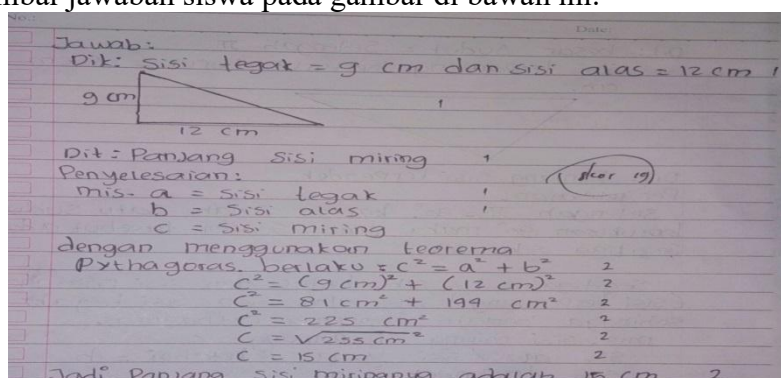 mbar jawaban siswa pada gambar di bawah ini.
No.:
Date:
Jawab:
Dik: Sisi tegak = 9 cm dan sisi alas = 12 cm 1
9 cm
1
12 cm
Dit: Panjang sisi miring 1
Penyelesaian:
skor 19
mis. a = sisi tegak 1
b = sisi alas 1
c = sisi miring
dengan menggunakan teorema
Pythagoras. berlaku = c² = a² + b² 2
c² = (9 cm)² + (12 cm)² 2
c² = 81 cm² + 199 cm² 2
c² = 225 cm² 2
c = √255 cm² 2
c = 15 cm 2
Jadi Panjang sisi miringnya adalah 15 cm 2